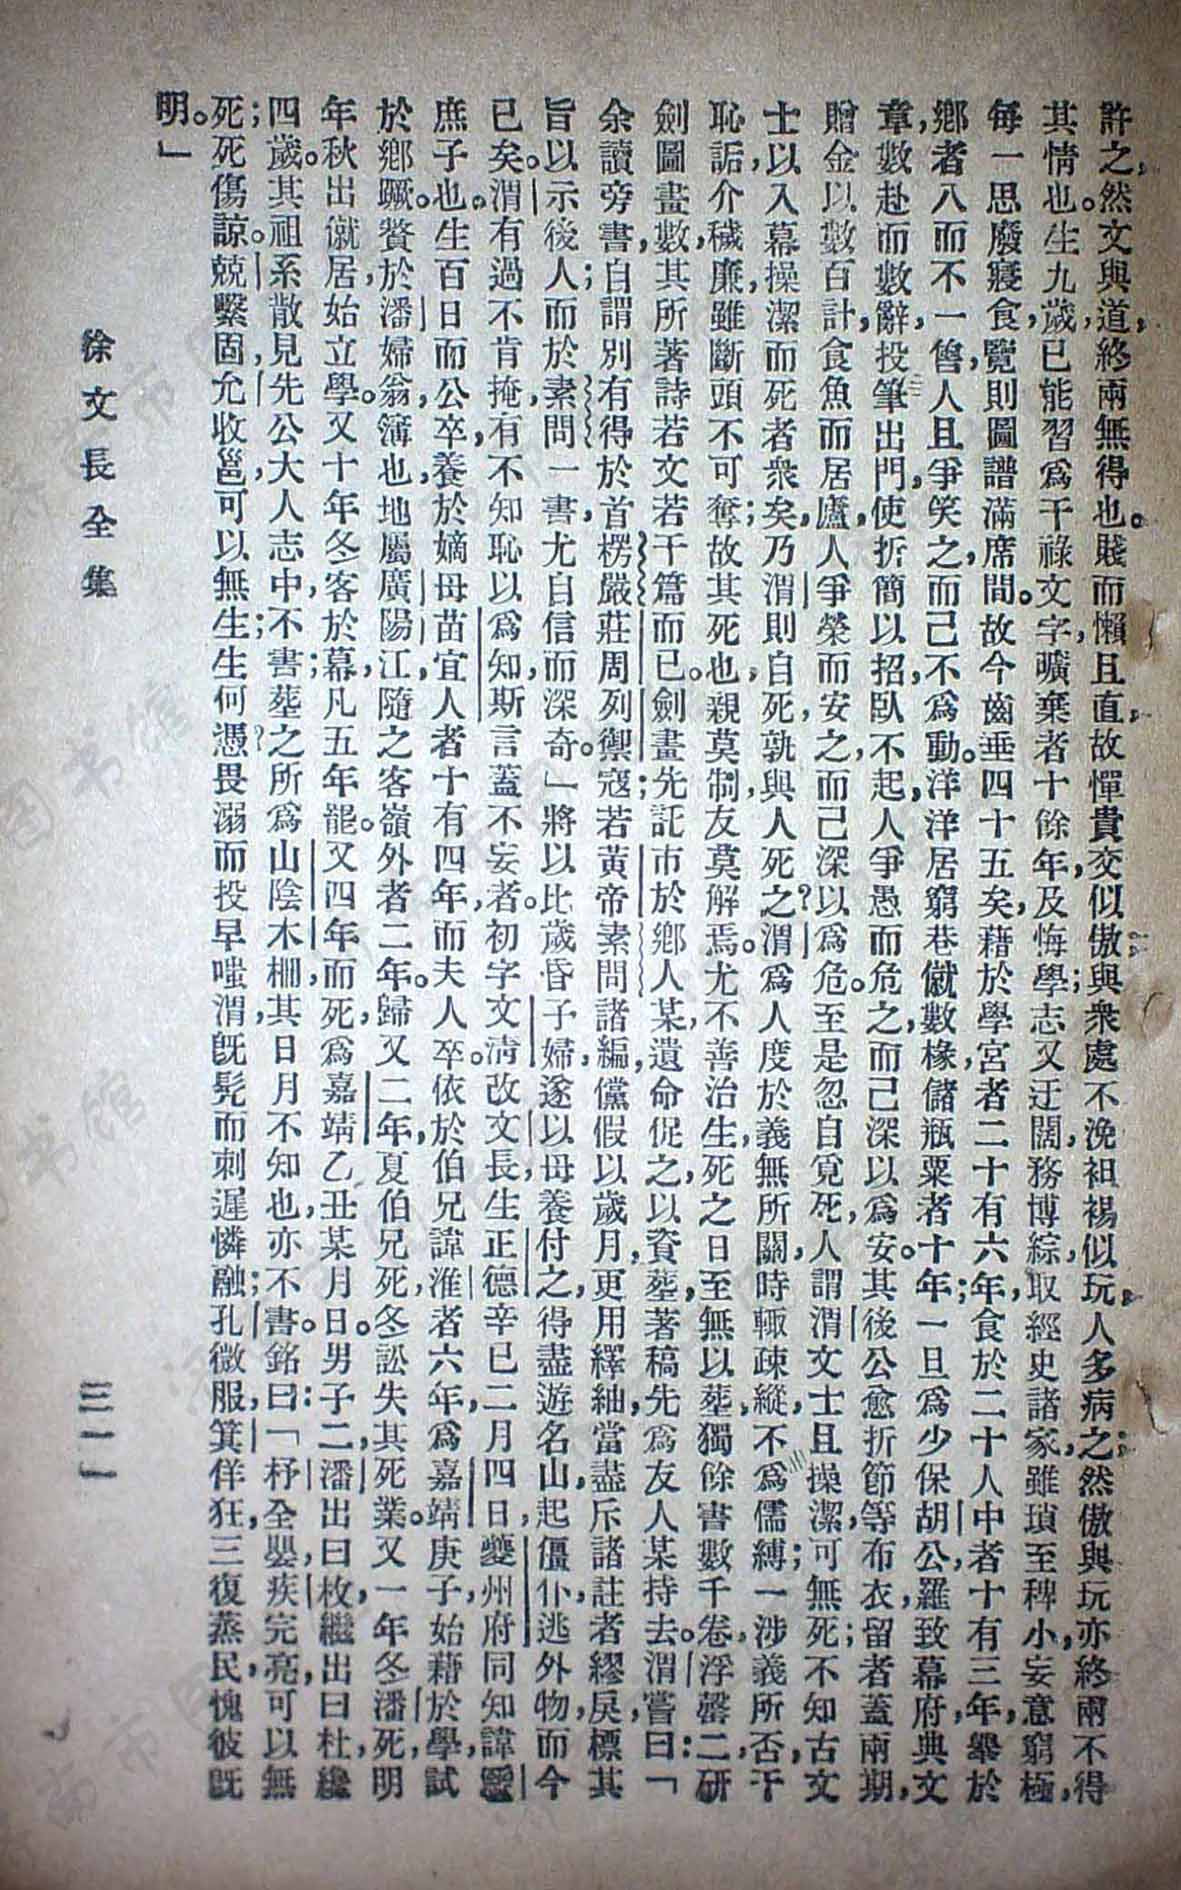 許之，然文與道，終兩無得也。賤而懶且直，故憚貴交似傲，與衆處不浼袒裼似玩，人多病之；然傲與玩亦終兩不得
其情也。生九歲，已能習爲干祿文字，曠棄者十餘年，及悔學；志又迂闊，務博綜，取經史諸家，雖瑣至稗小，妄意窮極，
每一思廢寢食，覽則圖譜滿席間。故今齒垂四十五矣，藉於學宮者二十有六年；食於二十人中者十有三年，舉於
鄉者八而不一售，人且爭笑之，而己不爲動。洋洋居窮巷，僦數椽，儲瓶粟者十年。一旦爲少保胡公，羅致幕府，典文
章，數赴而數辭，投筆出門，使折簡以招，臥不起，人爭愚而危之，而己深以爲安。其後公愈折節，等布衣，留者蓋兩期，
贈金以數百計，食魚而居廬，人爭榮而安之，而己深以爲危。至是忽自覓死，人謂渭文士，且操潔，可無死；不知古文
士以入幕操潔而死者衆矣，乃渭則自死，孰與人死之？渭爲人度於義無所關，時輒疎縱，不爲儒縛；一涉義所否，干
恥詬，介穢廉，雖斷頭不可奪；故其死也，親莫制，友莫解焉。尤不善治生，死之日，至無以葬，獨餘書數千卷，浮罄二，研
劍圖畫數，其所著詩若文若干篇而已。劍畫先託市於鄉人某，遺命促之，以資葬，著稿先爲友人某持去。渭嘗曰：「
余讀旁書，自謂別有得於首楞嚴，莊周列禦寇，若黃帝素問諸編，儻假以歲月，更用繹紬，當盡斥諸註者繆戾，標其
旨以示後人；而於素問一書，尤自信而深奇。」將以比歲昏子婦，遂以母養付之，得盡遊名山，起僵仆，逃外物，而今
已矣。渭有過不肯掩，有不知恥以爲知，斯言蓋不妄者。初字文清，改文長，生正德辛巳二月四日，夔州府同知諱鏓
庶子也。生百日而公卒，養於嫡母苗宜人者十有四年，而夫人卒。依於伯兄諱淮者六年，爲嘉靖庚子，始藉於學，試
於鄉蹶。贅於潘婦翁簿也，地屬廣陽江，隨之客嶺外者二年，歸又二年，夏伯兄死，冬訟失其死業。又一年冬潘死，明
年秋出僦居，始立學。又十年冬，客於幕，凡五年罷。又四年而死，爲嘉靖乙丑某月日。男子二，潘出曰枚，繼出曰杜，纔
四歲。其祖系散見先公大人志中，不書；葬之所爲山陰木柵，其日月不知也，亦不書。銘曰：「杼全嬰，疾完亮，可以無
死；死傷諒。兢繫固，允收邕，可以無生；生何憑？畏溺而投早嗤渭，旣髡而刺遲憐融；孔微服，箕佯狂，三復蒸民，愧彼旣
明。」
徐文長全集
三一一